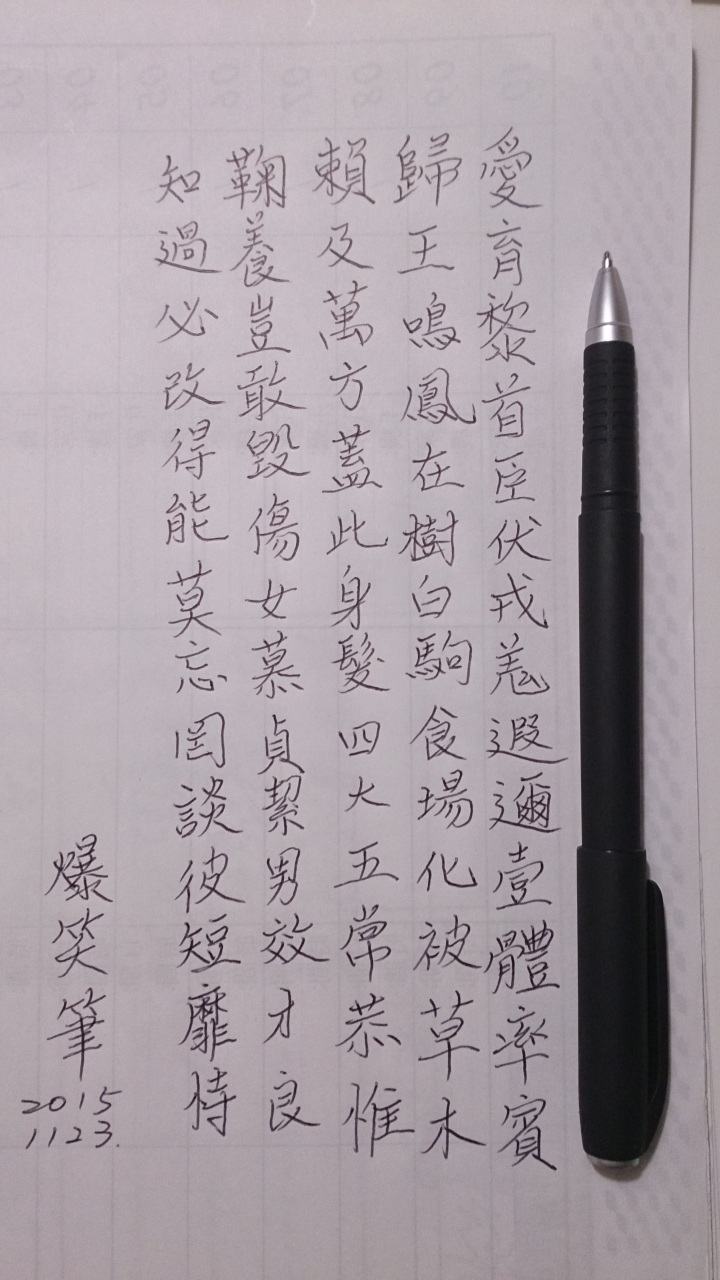 愛育黎首臣伏戎羌遐邇壹體率賓
歸王鳴鳳在樹白駒食場化被草木
賴及萬方蓋此身髮四大五常恭惟
鞠養豈敢毀傷女慕貞絜男效才良
知過必改得能莫忘罔談彼短靡恃
爆笑筆
2015
1123.